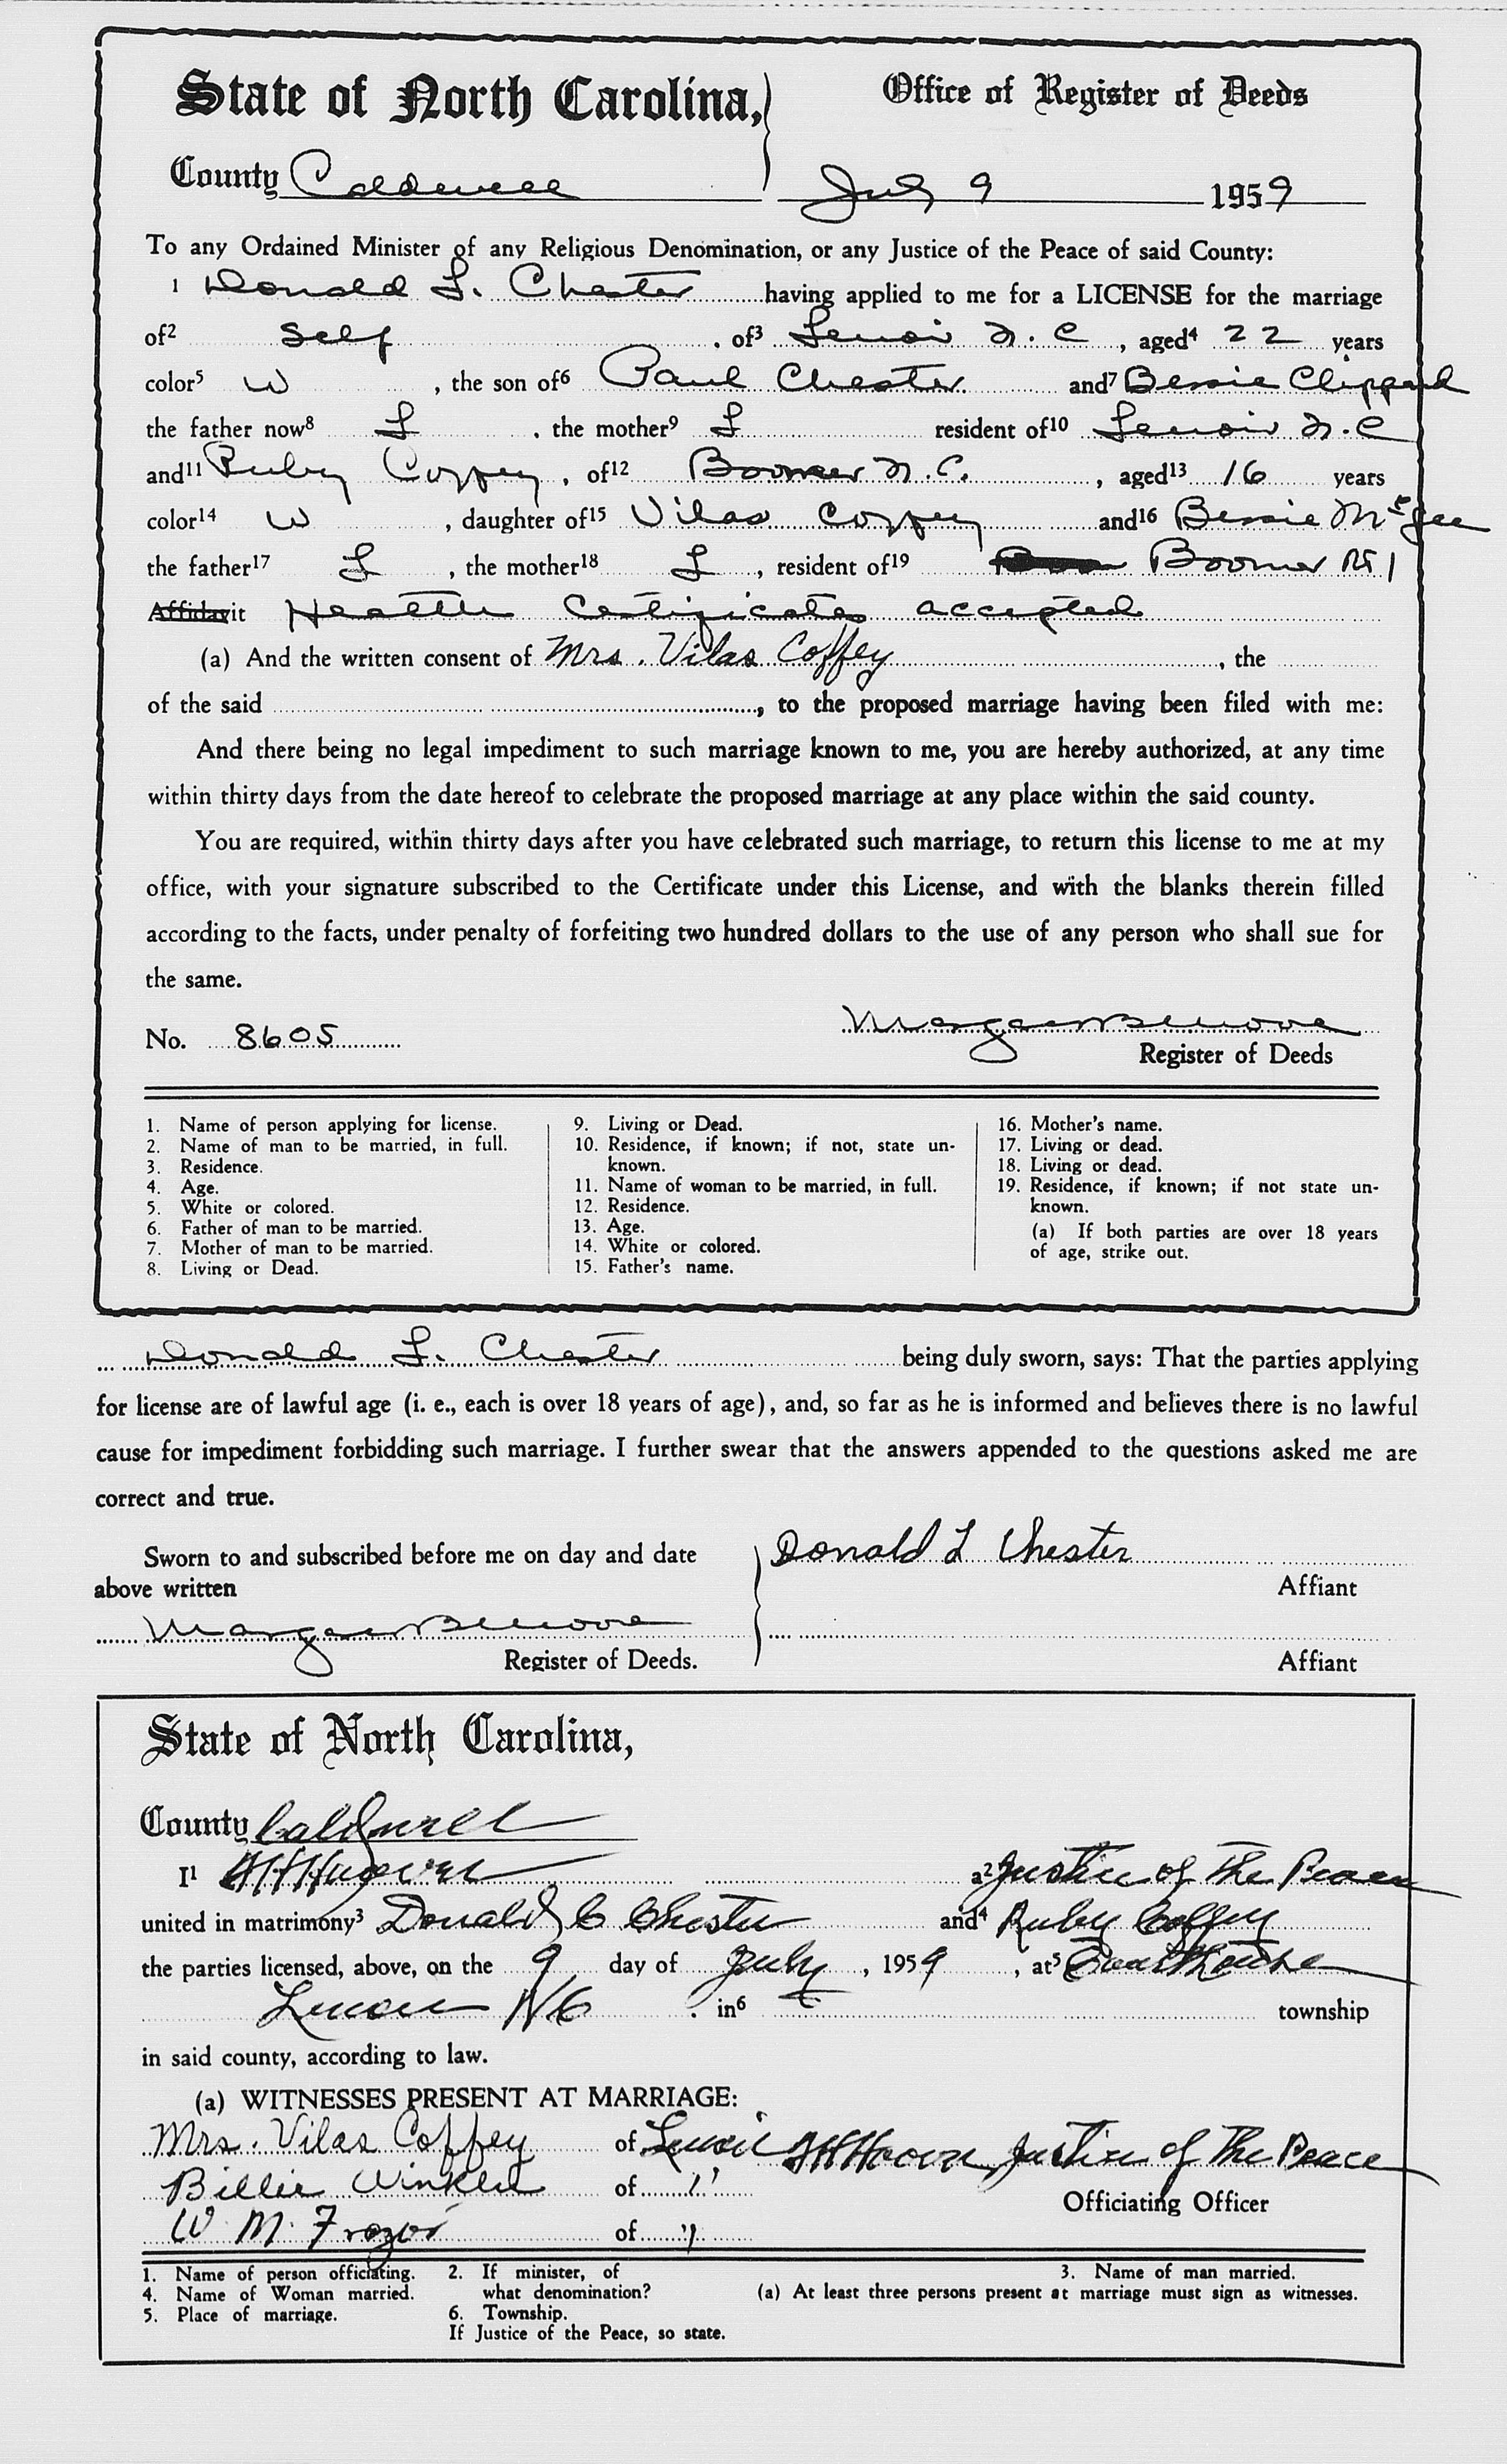 State of North Carolina, Office of Register of Deeds
County Caldwell July 9 1959
To any Ordained Minister of any Religious Denomination, or any Justice of the Peace of said County:
1 Donald L. Chester having applied to me for a LICENSE for the marriage
of2 Self , of3 Lenoir N. C , aged4 22 years
color5 W , the son of6 Paul Chester and7 Bessie Clippard
the father now8 L , the mother9 L resident of10 Lenoir N.C
and11 Ruby Coffey , of12 Boomer N.C. , aged13 16 years
color14 W , daughter of15 Vilas Coffey and16 Bessie McGee
the father17 L , the mother18 L , resident of19 Boomer Rt 1
Affidavit Health Certificates accepted
(a) And the written consent of Mrs. Vilas Coffey , the
of the said , to the proposed marriage having been filed with me:
And there being no legal impediment to such marriage known to me, you are hereby authorized, at any time
within thirty days from the date hereof to celebrate the proposed marriage at any place within the said county.
You are required, within thirty days after you have celebrated such marriage, to return this license to me at my
office, with your signature subscribed to the Certificate under this License, and with the blanks therein filled
according to the facts, under penalty of forfeiting two hundred dollars to the use of any person who shall sue for
the same.
No. 8605
Register of Deeds
1. Name of person applying for license.
2. Name of man to be married, in full.
3. Residence.
4. Age.
5. White or colored.
6. Father of man to be married.
7. Mother of man to be married.
8. Living or Dead.
9. Living or Dead.
10. Residence, if known; if not, state un-
known.
11. Name of woman to be married, in full.
12. Residence.
13. Age.
14. White or colored.
15. Father's name.
16. Mother's name.
17. Living or dead.
18. Living or dead.
19. Residence, if known; if not state un-
known.
(a) If both parties are over 18 years
of age, strike out.
Donald L. Chester being duly sworn, says: That the parties applying
for license are of lawful age (i. e., each is over 18 years of age), and, so far as he is informed and believes there is no lawful
cause for impediment forbidding such marriage. I further swear that the answers appended to the questions asked me are
correct and true.
Sworn to and subscribed before me on day and date Donald L Chester
above written Affiant
Register of Deeds. Affiant
State of North Carolina,
County Caldwell
I1 a2 Justice of The Peace
united in matrimony3 Donald C Chester and4 Ruby Coffey
the parties licensed, above, on the 9 day of July , 1959 , at5 Courthouse
Lenoir NC . in6 township
in said county, according to law.
(a) WITNESSES PRESENT AT MARRIAGE:
Mrs. Vilas Coffey of Lenoir Justice of The Peace
Billie Winkler of " Officiating Officer
W. M. of "
1. Name of person officiating. 2. If minister, of 3. Name of man married.
4. Name of Woman married. what denomination? (a) At least three persons present at marriage must sign as witnesses.
5. Place of marriage. 6. Township.
If Justice of the Peace, so state.